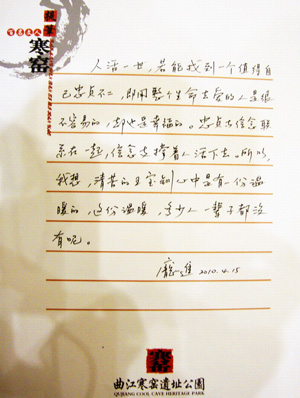 寒窑
人活一世，若能找到一个值得自
己忠贞不二，即用整个生命去爱的人是很
不容易的，却也是幸福的。忠贞与信念联
系在一起，信念支撑着人活下去。所以，
我想，清苦的王宝钏心中是有一份温
暖的，这份温暖，多少人一辈子都没
有呢。
2010.4.15
寒窑
曲江寒窑遺址公園
QUJIANG COOL CAVE HERITAGE PARK